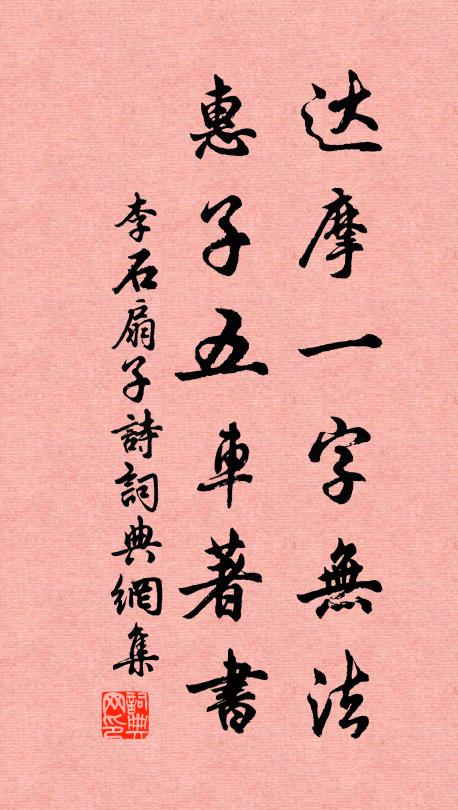 达摩一字無法
惠子五車著書
李石扇子詩詞典網集
詞典網印